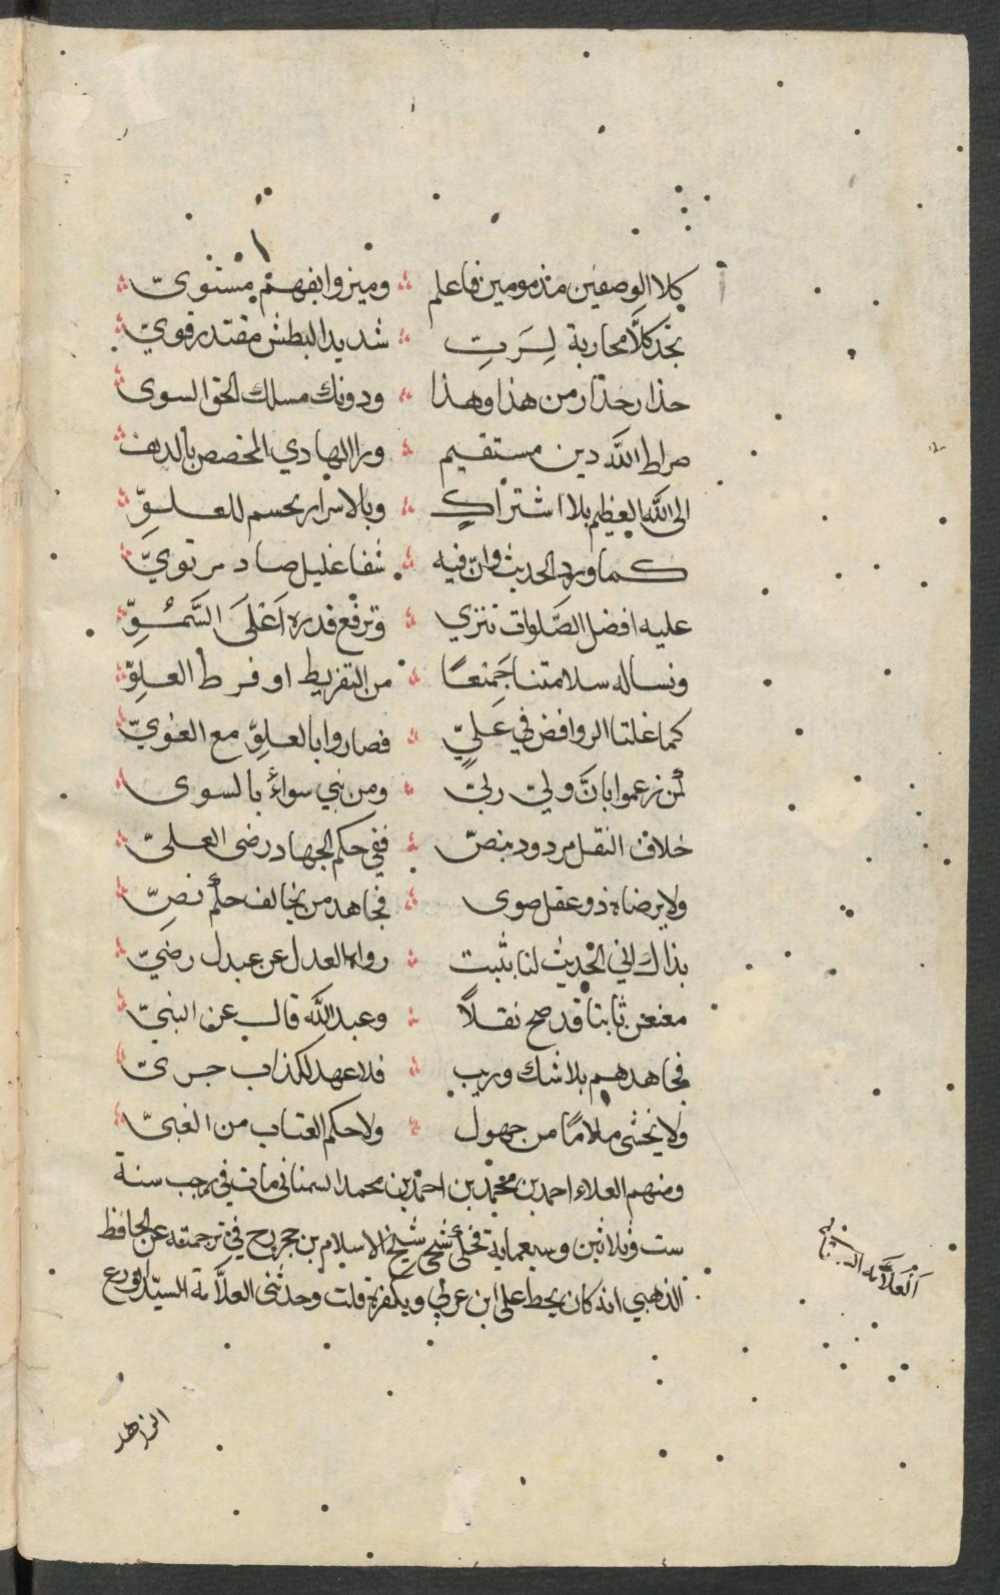 كلا الوصفين مذمومين فاعلم ؞ وميزوا بفهم مستوىّ
تجد كلاًّ محاربة لِرَبّ ؞ شديد البطش مقتدر قويّ
حذار حذار من هذا وهذا ؞ ودونك مسلك الحق السوى
صراط الله دين مستقيم ؞ ورا الهادي المخصص
الى الله العظيم بلا اشتراكٍ ؞ وبالاسرار بحسم للعلوِّ
كما ورد الحديث وانّ فيه ؞ شفا غليل صاد مرتويّ
عليه افضل الصَّلوات تترى ؞ وترفع قدره اَعْلَى السَّمُوِّ
ونساله سلامتنا جَمِيْعًا ؞ من التفريط او فرط العلوّ
كما غلت الروافض في عَليٍّ ؞ فصاروا بالعلوّ مع الغويّ
لمن زعموا بانَّ ولي ربي ؞ ومن نبي سواءً بالسوى
خلاف النقل مردود بنصّ ؞ ففي حكم الجهاد رضى العلىّ
ولا يرضاه ذو عقل صوى ؞ فجاهد من يخالف حكم نصِّ
بذاك اتي الحديث لنا بثبت ؞ رواه العدل عن عدل رضيّ
معنعن ثابتا قد صح نقلاً ؞ وعبد الله قال عن النبيّ
فجاهدهم بلا شك وريب ؞ فلا عهد لكذاب جرىّ
ولا تخشى ملامًا من جهول ؞ ولا حكم العتاب من الغبىّ
ومنهم العلاء احمد بن محمد بن احمد بن محمد السمناني مات في رجب سنة
ست وثلاثين وسبعماية فحكى شيخ شيخ الاسلام بن حجر ح في ترجمته عن الحافظ
الذهبي انه كان يحط على ابن عربي ويكفره قلت وحدثنى العلّامة السيّد الورع
العلّامه السمناني
الزاهد